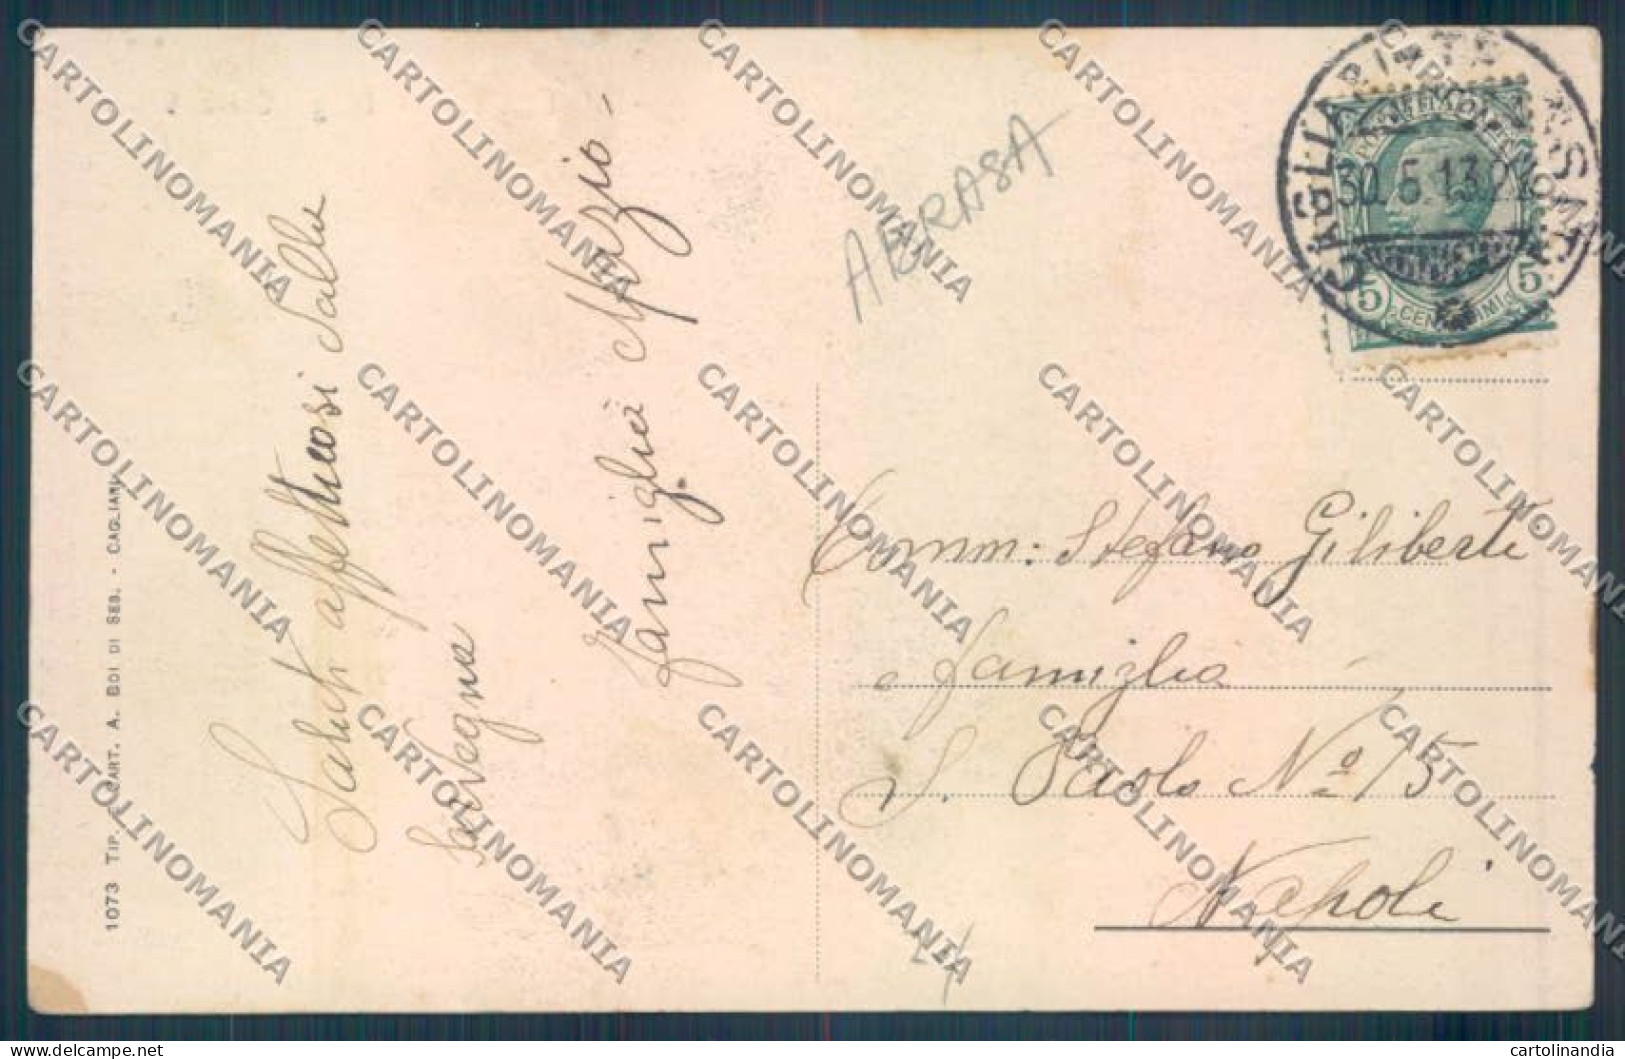 Saluti affettuosi dalla
Sardegna
Famiglia Mazio -
ABRASA
Comm: Stefano Giliberti
e famiglia
S. Paolo Nº 15
Napoli
1073 TIP. CART. A. BOI DI SEB. - CAGLIARI
30.5.13.22
5 5
CENTESIMI
CARTOLINOMANIA
www.delcampe.net
cartolinandia